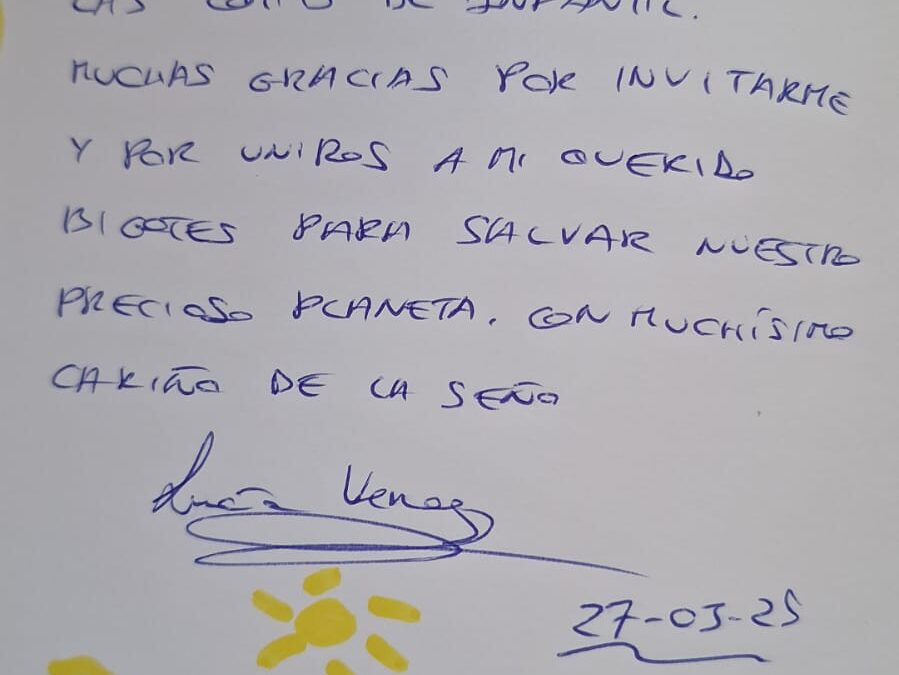 DE INFANTIL.
MUCHAS GRACIAS POR INVITARME
Y POR UNIROS A MI QUERIDO
BIGOTES PARA SALVAR NUESTRO
PRECIOSO PLANETA. CON MUCHÍSIMO
CARIÑO DE LA SEÑO
Lucía Venegas
27-03-25